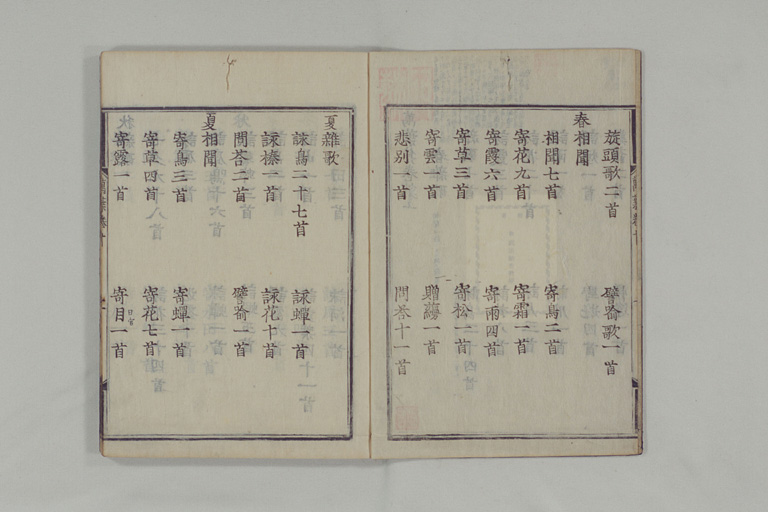 旋頭歌二首　譬喩歌一首
春相聞
相聞七首　寄鳥二首
寄花九首　寄霜一首
寄霞六首　寄雨四首
寄草三首　寄松一首
寄雲一首　贈蘰一首
悲別一首　問荅十一首
夏雜歌
詠鳥二十七首　詠蟬一首
詠榛一首　詠花十首
問荅二首　譬喩一首
夏相聞
寄鳥三首　寄蟬一首
寄草四首　寄花七首
寄露一首　寄目一首